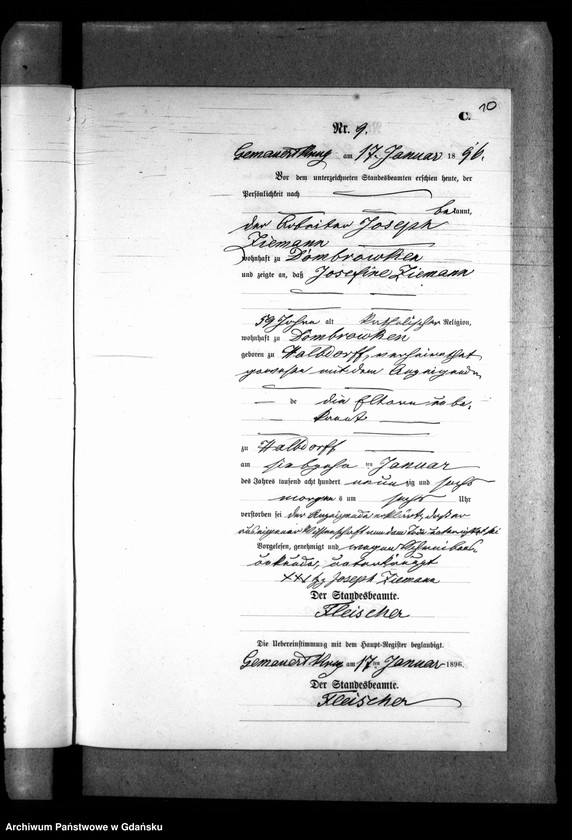 10
C.
Nr. 9.
Gemauert Krug am 17. Januar 1896.
Vor dem unterzeichneten Standesbeamten erschien heute, der
Persönlichkeit nach
bekannt,
der Arbeiter Joseph
Ziemann
wohnhaft zu Dombrowken
und zeigte an, daß Josefine Ziemann
59 Jahre alt katholischer Religion,
wohnhaft zu Dombrowken
geboren zu Waldorff, verheirathet
gewesen mit dem Anzeigenden
de die Eltern unbe-
kannt
zu Waldorff
am siebzehn ten Januar
des Jahres tausend acht hundert neun zig und sechs
morgens um sechs Uhr
verstorben sei der Anzeigende erklärt, daß er
aus eigener Wissenschaft von dem Tode unterrichtet sei
Vorgelesen, genehmigt und wegen Schreibens-
unkunde, unterkreuzt
XXX Joseph Ziemann
Der Standesbeamte.
Fleischer
Die Uebereinstimmung mit dem Haupt-Register beglaubigt.
Gemauert Krug am 17 ten Januar 1896.
Der Standesbeamte.
Fleischer
Archiwum Państwowe w Gdańsku